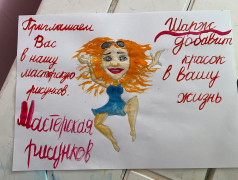 Приглашаем
Вас
в нашу
мастерскую
рисунков.
Мастерская
рисунков
Шарж
добавит
красок
в вашу
жизнь